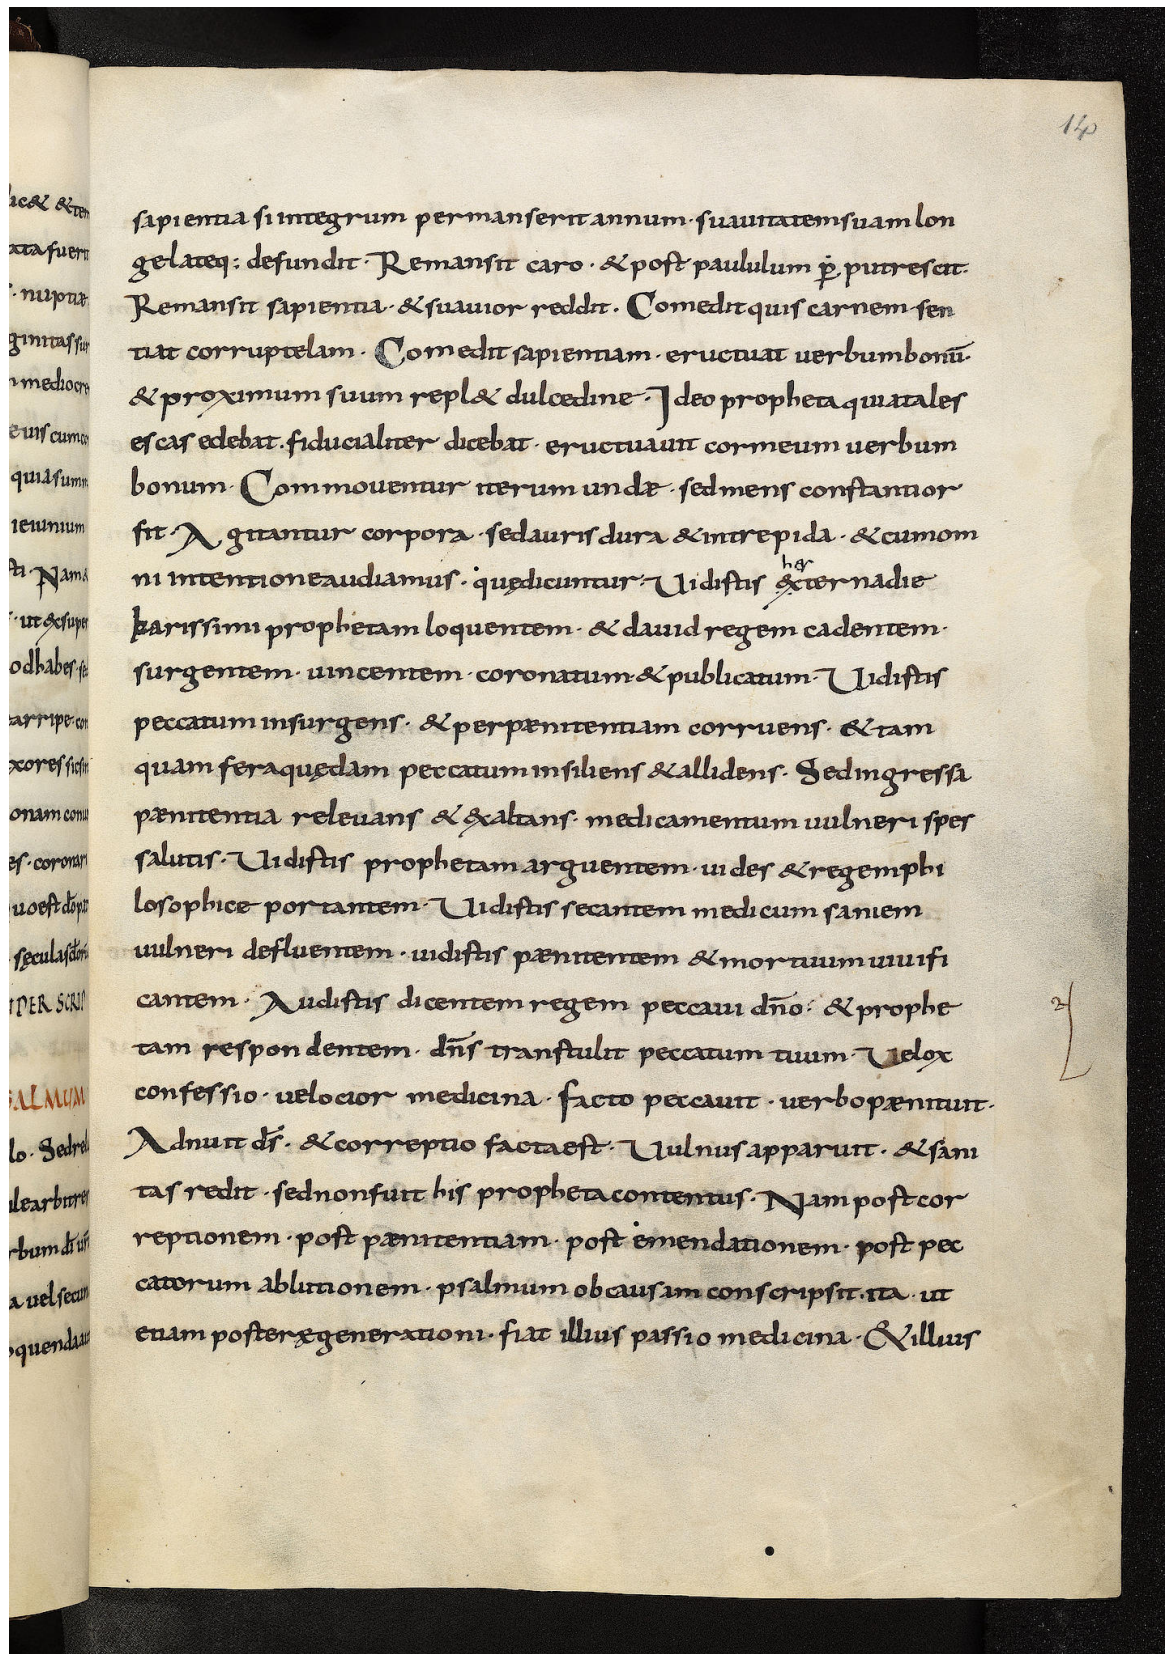 140
sapientia si integrum permanserit annum · suauitatem suam lon
ge lateq: defundit · Remansit caro · & post paululum p̣ putrescit ·
Remansit sapientia · & suauior reddit · Comedit quis carnem · sen
tiat corruptelam · Comedit sapientiam · eructuat uerbum bonū ·
& proximum suum repl& dulcedine · Ideo propheta quia tales
escas edebat · fiducialiter dicebat · eructuauit cor meum uerbum
bonum · Commouentur iterum undæ · sed mens constantior
fit · Agitantur corpora · sed auris dura & intrepida · & cum om
ni intentione audiamus · quę dicuntur · Uidistis externa die
her
karissimi prophetam loquentem · & dauid regem cadentem ·
surgentem · uincentem · coronatum · & publicatum · Uidistis
peccatum insurgens · & per pænitentiam corruens · & tam
quam fera quędam peccatum insiliens & allidens · Sed ingressa
pænitentia releuans & exaltans · medicamentum uulneri spes
salutis · Uidistis prophetam arguentem · uides & regem phi
losophice portantem · Uidistis secantem medicum saniem
uulneri defluentem · uidistis pænitentem & mortuum uiuifi
cantem · Audistis dicentem regem peccaui dño · & prophe
tam respondentem · dñs transtulit peccatum tuum · Uelox
confessio · uelocior medicina · facto peccauit · uerbo pænituit ·
Adnuit ds̄ · & correptio facta est · Uulnus apparuit · & sani
tas redit · sed non fuit his propheta contentus · Nam post cor
reptionem · post pænitentiam · post emendationem · post pec
catorum ablutionem · psalmum ob causam conscripsit · ita · ut
etiam posteræ generationi · fiat illius passio medicina · & illius